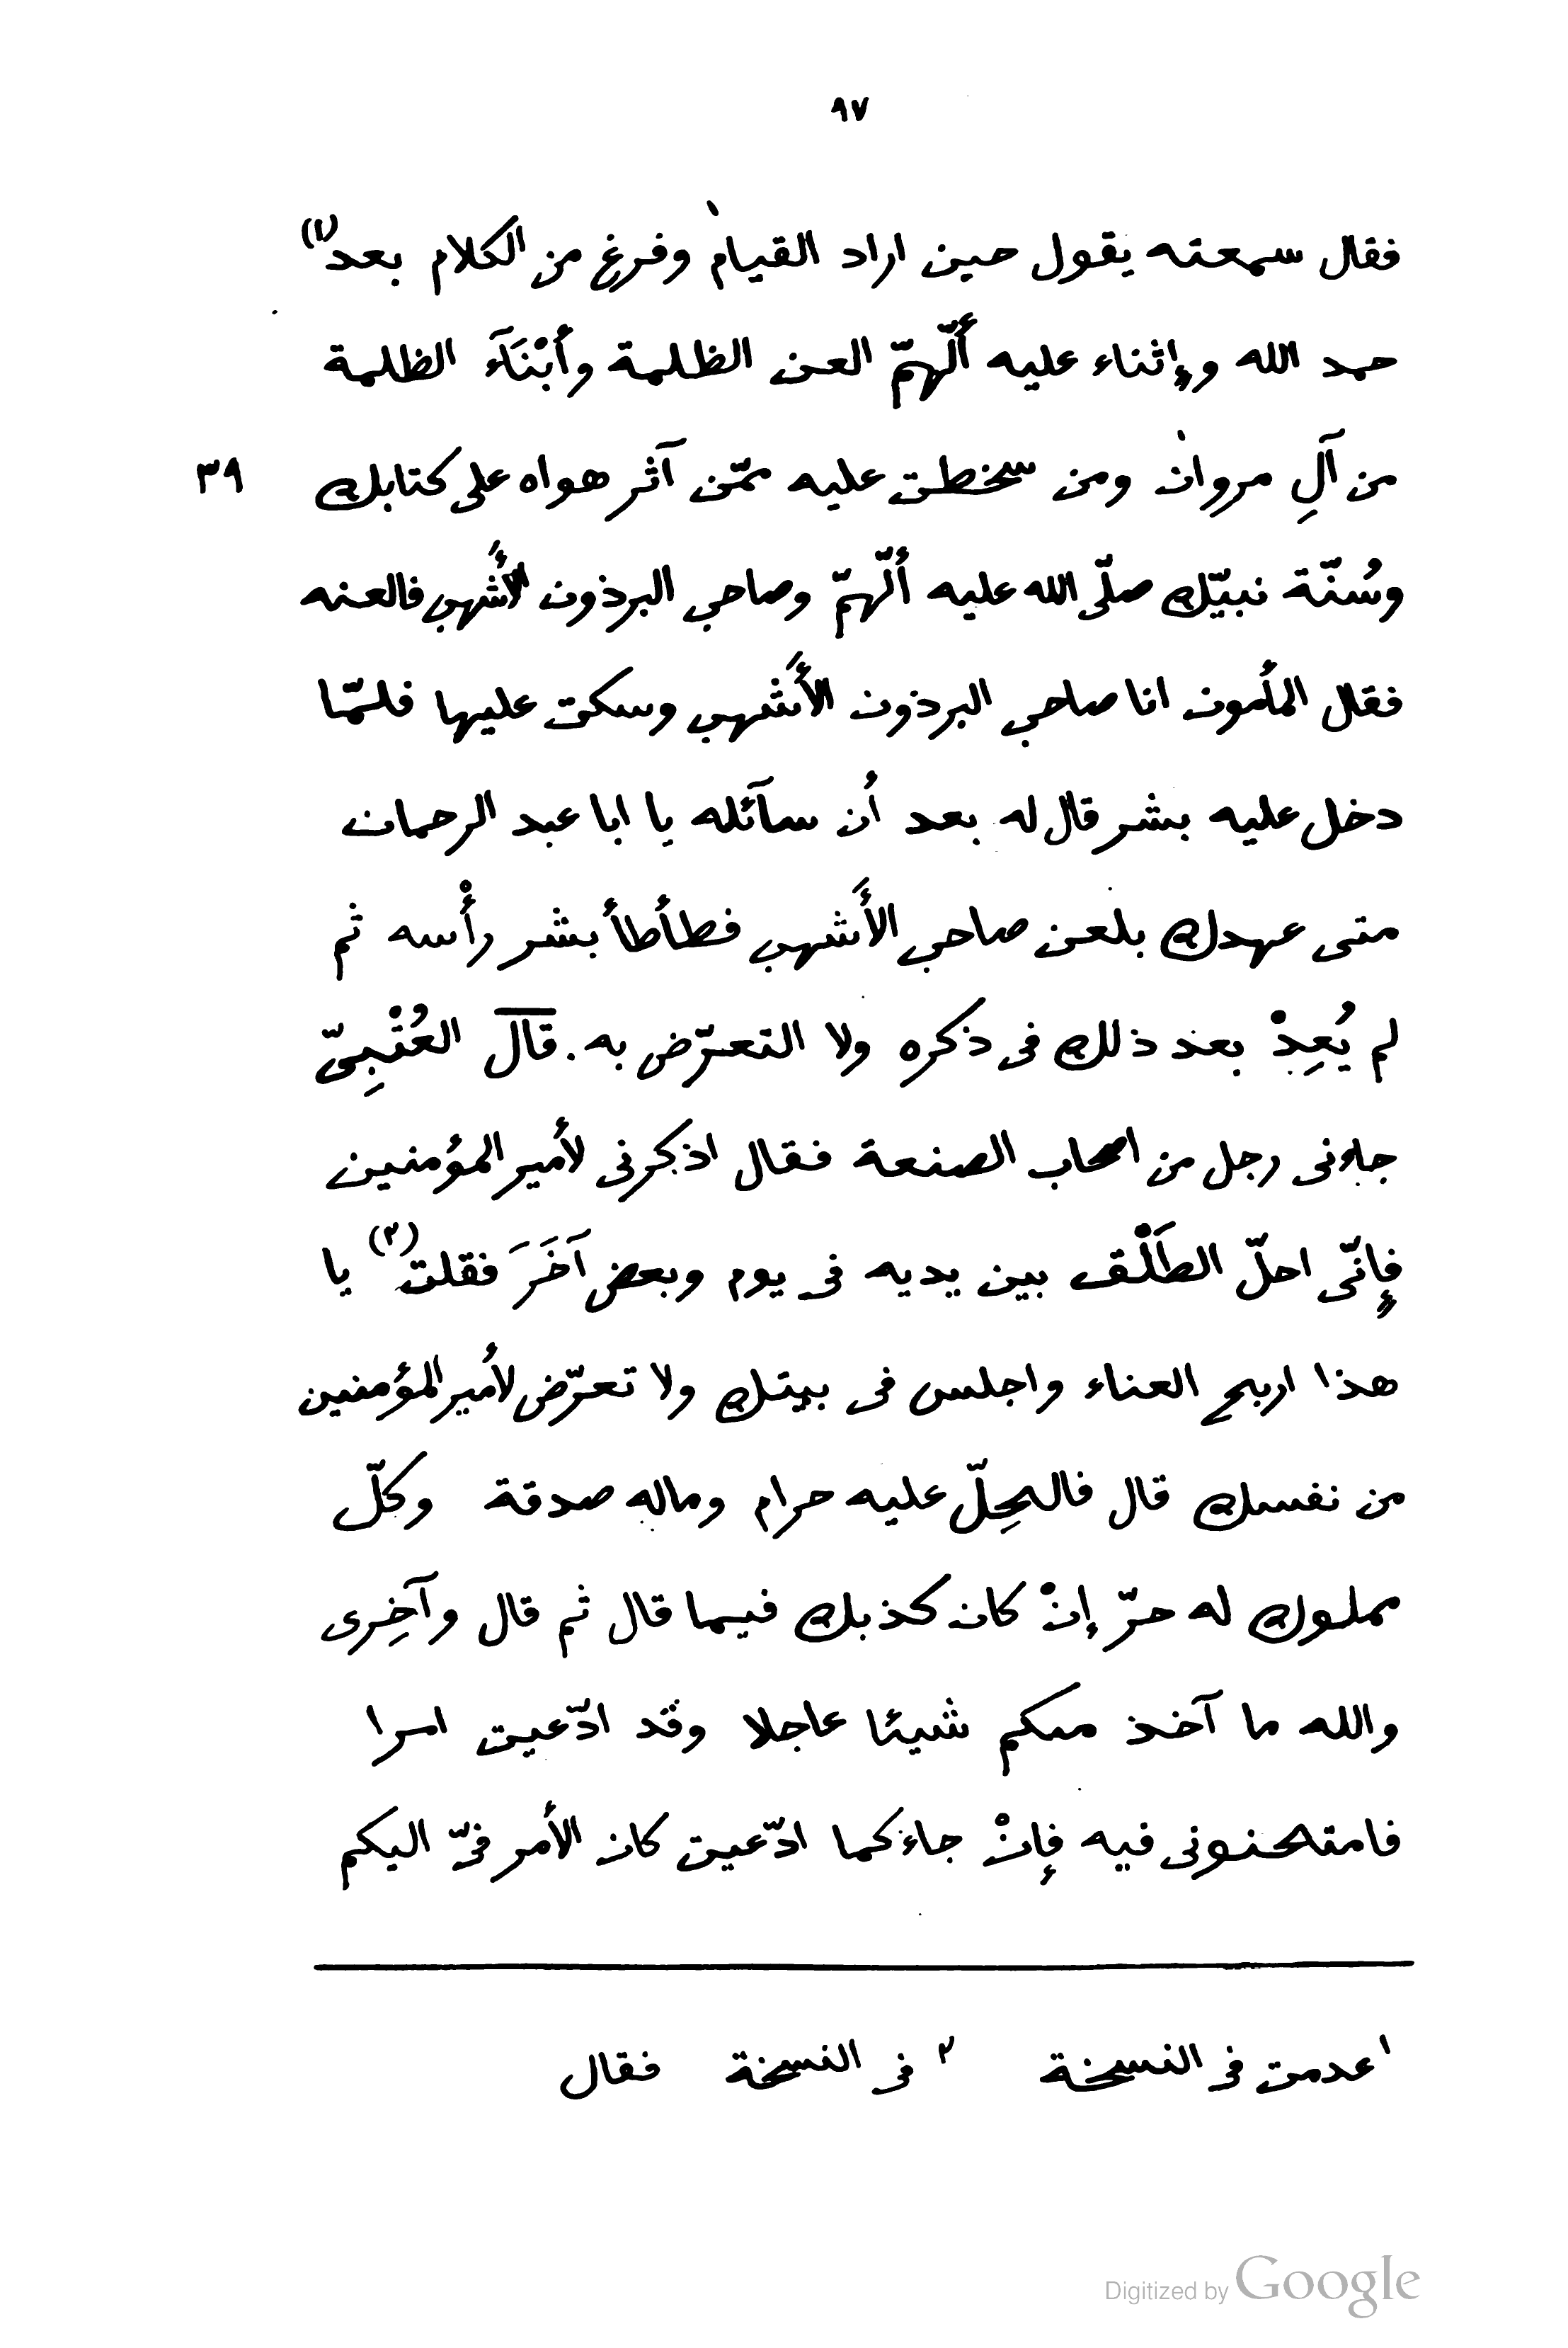 ٩٧
فقال سمعته يقول حين اراد القيام وفرغ من الكلام بعد(١)
حمد الله وإثناء عليه أَلّهمّ العن الظلمة وأبْنَآَء الظلمة
من آلِ مروان ومن سخطت عليه ممّن آثر هواه على كتابك ٣٩
وسُنّة نبيّك صلّى الله عليه ألّهمّ وصاحب البرذون الأَشهب فالعنه
فقال المأمون انا صاحب البرذون الأَشهب وسكت عليها فلمّا
دخل عليه بشر قال له بعد أن سآئله يا ابا عبد الرحمان
متى عهدك بلعن صاحب الأَشهب فطأطأ بشر رأْسه ثم
لم يُعِدْ بعد ذلك فى ذكره ولا التعرّض به. قال العُتْبِىّ
جاءنى رجل من اصحاب الصنعة فقال اذكرنى لأمير المؤمنين
فإنّى احلّ الطَلْق بين يديه فى يوم وبعض آخَرَ فقلت(٢) يا
هذا اربح العناء واجلس فى بيتك ولا تعرّض لأمير المؤمنين
من نفسك قال فالحِلّ عليه حرام وماله صدقة وكلّ
مملوك له حرّ إنْ كان كذبك فيما قال ثم قال وآخِرى
والله ما آخذ منكم شيئا عاجلا وقد ادّعيت امرا
فامتحنونى فيه فإنْ جاء كما ادّعيت كان الأمر فىّ اليكم
١ عدمت فى النسخة ٢ فى النسخة فقال
Digitized by Google